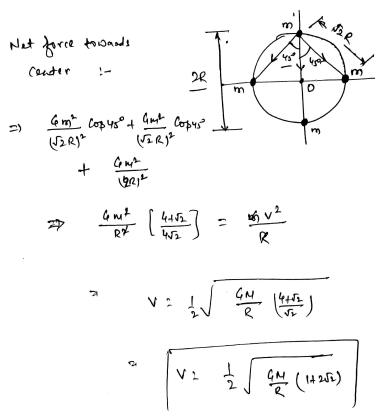 Net force towards
center :-
m'
√2 R
45°
45°
2R
m
O
m
m
⇒ Gm²/(√2R)² Cos45° + Gm²/(√2R)² Cos45°
+ Gm²/(2R)²
⇒ Gm²/R² [4+√2/4√2] = mv²/R
= V = 1/2 √(GM/R (4+√2/√2))
= V = 1/2 √(GM/R (1+2√2))